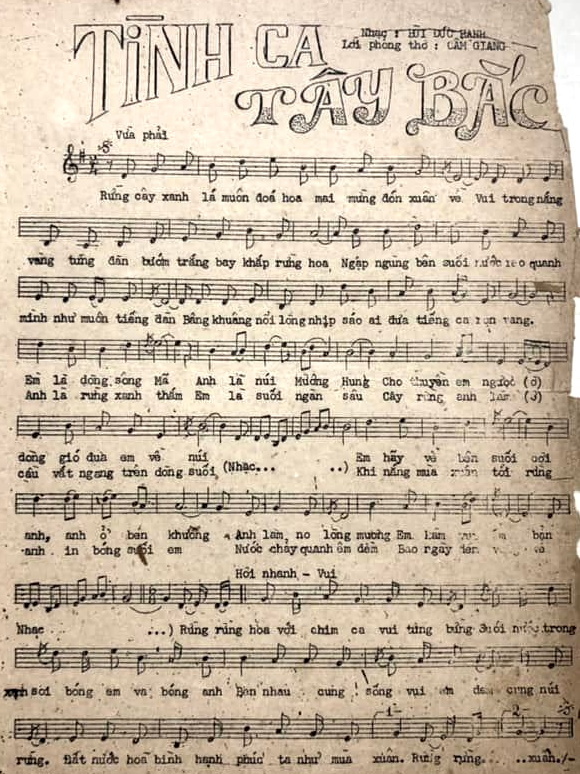 TÌNH CA
TÂY BẮC
Nhạc : BÙI ĐỨC HẠNH
Lời phỏng thơ : CẦM GIANG
Vừa phải
Rừng cây xanh lá muôn đoá hoa mai mừng đón xuân về Vui trong nắng
vàng từng đàn bướm trắng bay khắp rừng hoa Ngập ngừng bên suối nước reo quanh
mình như muôn tiếng đàn Bâng khuâng nổi lòng nhịp sáo ai đưa tiếng ca vang.
Em là dòng sông Mã Anh là núi Mường Hung Cho thuyền em ngược (ơ)
Anh là rừng xanh thắm Em là suối ngàn sâu Cây rừng anh làm (ơ)
dòng gió đưa em về núi Em hãy về bên suối đợi
cầu vắt ngang trên dòng suối (Nhạc... ..) Khi nắng mùa xuân tới rừng
anh, anh ở bên khuống Anh làm no lòng mường Em làm ấm bản
anh in bóng suối em Nước chảy quanh êm đềm Bao ngày đêm
Hơi nhanh - Vui
Nhạc ...) Rừng rừng hòa với chim ca vui từng bừng Suối nước trong
xanh soi bóng em và bóng anh Bên nhau cùng sống vui em đem cùng núi
1- 2-
rừng. Đất nước hoà bình hạnh phúc ta như mùa xuân. Rừng rừng.. ..xuân./-